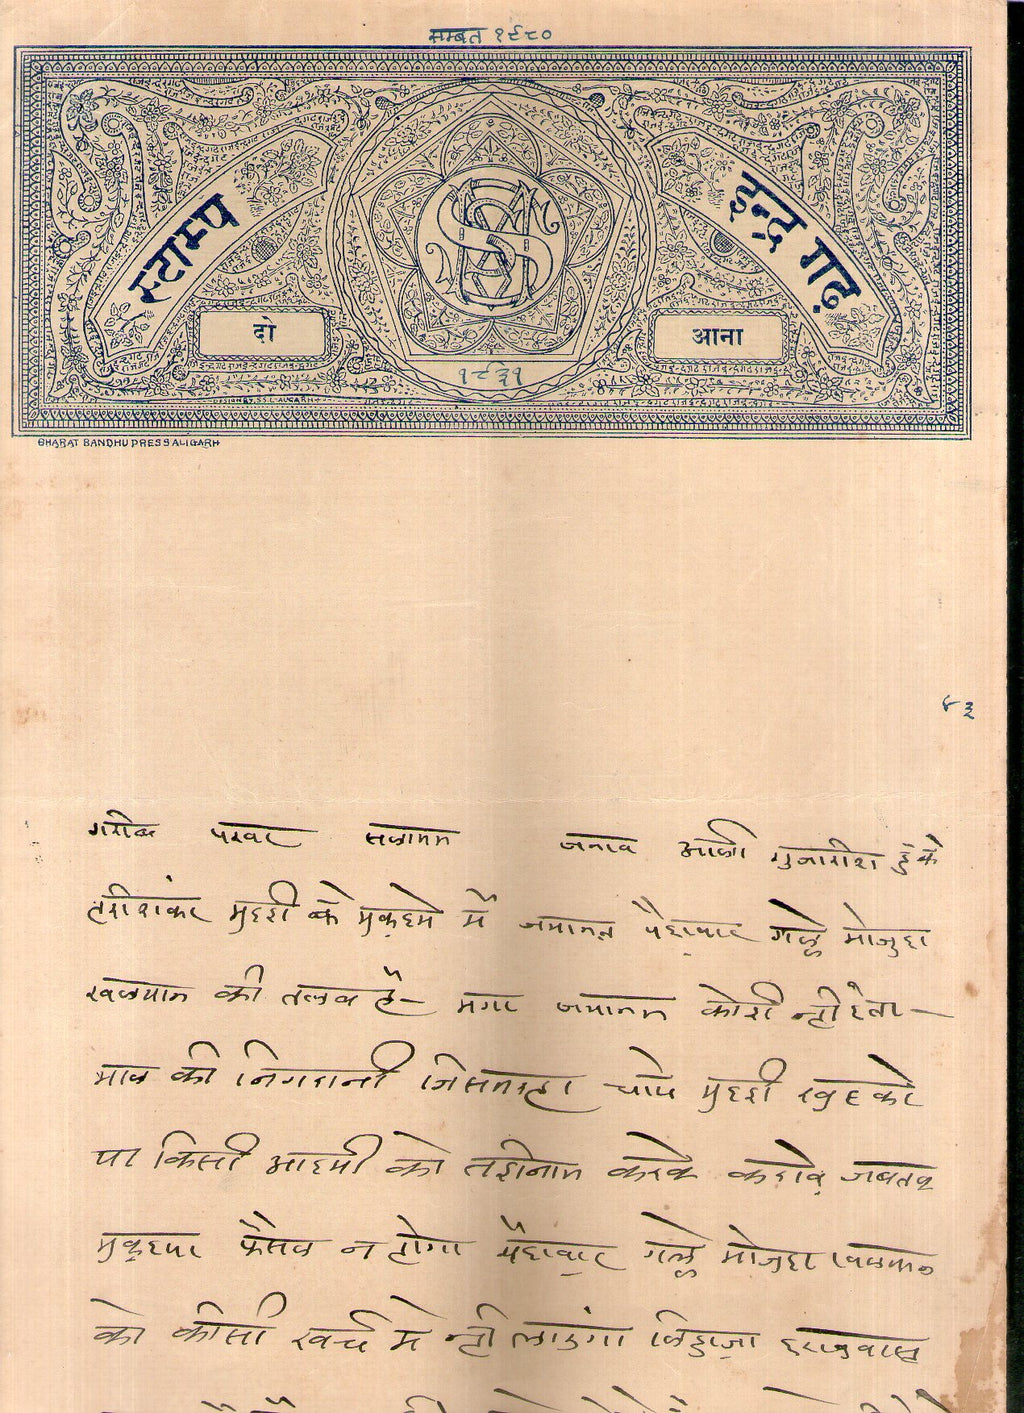 सम्बत १९८०
स्टाम्प इन्द्र गढ़
दो आना
१८३१
BHARAT BANDHU PRESS ALIGARH
४३
गरीब परवर सलामत जनाब आली गुजारीश है के
मुददी के मुकदमे में जमानत पैदावार गल्ले मोजुदा
खलयान की तलब है मगर जमानत कोई न्ही देता
माल की निगरानी जिस तरहा चाहे मुददी खुद करे
या किसी आदमी को करके करावे जबतक
मुकदमा फैसल न होगा पैदावार गल्ले मोजुदा खलयान
को कीसी खर्च मे न्ही लाउंगा लिहाजा